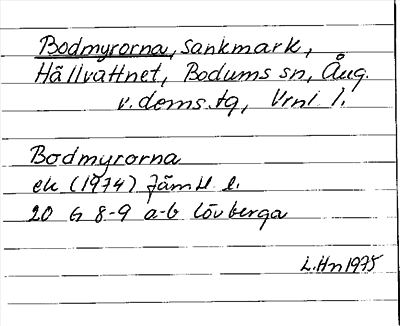 Bodmyrorna, sankmark,
Hällvattnet, Bodums sn, Ång.
v.doms.tg, Vrnl l.
Bodmyrorna
ek (1974) Jämtl l.
20 G 8-9 a-b Lövberga
L.Hn 1975